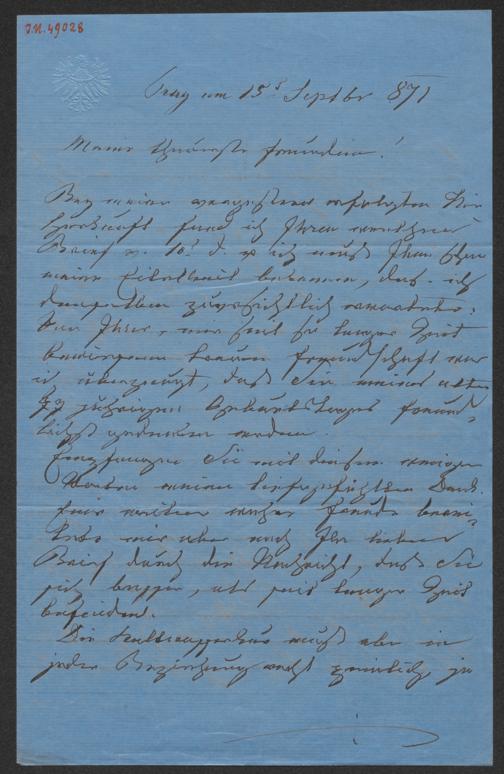 J.N. 49028
Prag am 15t Septbr 871
Meine theuerste Freundin!
Bey meiner erfolgten Hie
herkunft fand ich Ihren werthen
Brief v. 10t d. ich muß Ihnen schon
meine Eitelkeit bekennen, daß ich
denselben zuversichtlich erwartete;
Ihrer, mir seit so langer Zeit
bewiesenen treuen Freundschaft war
ich überzeugt, daß Sie meines alten
jährigen Geburtstages freund-
lichst gedenken werden.
Empfangen Sie mit diesen wenigen
Worten meinen tiefgefühlten Dank.
Eine weitere Freude berei-
tete mir aber auch Ihr lieber
Brief durch die Nachricht, daß Sie
sich besser, als seit langer Zeit
befinden.
Die muß aber in
jeder Beziehung recht ja